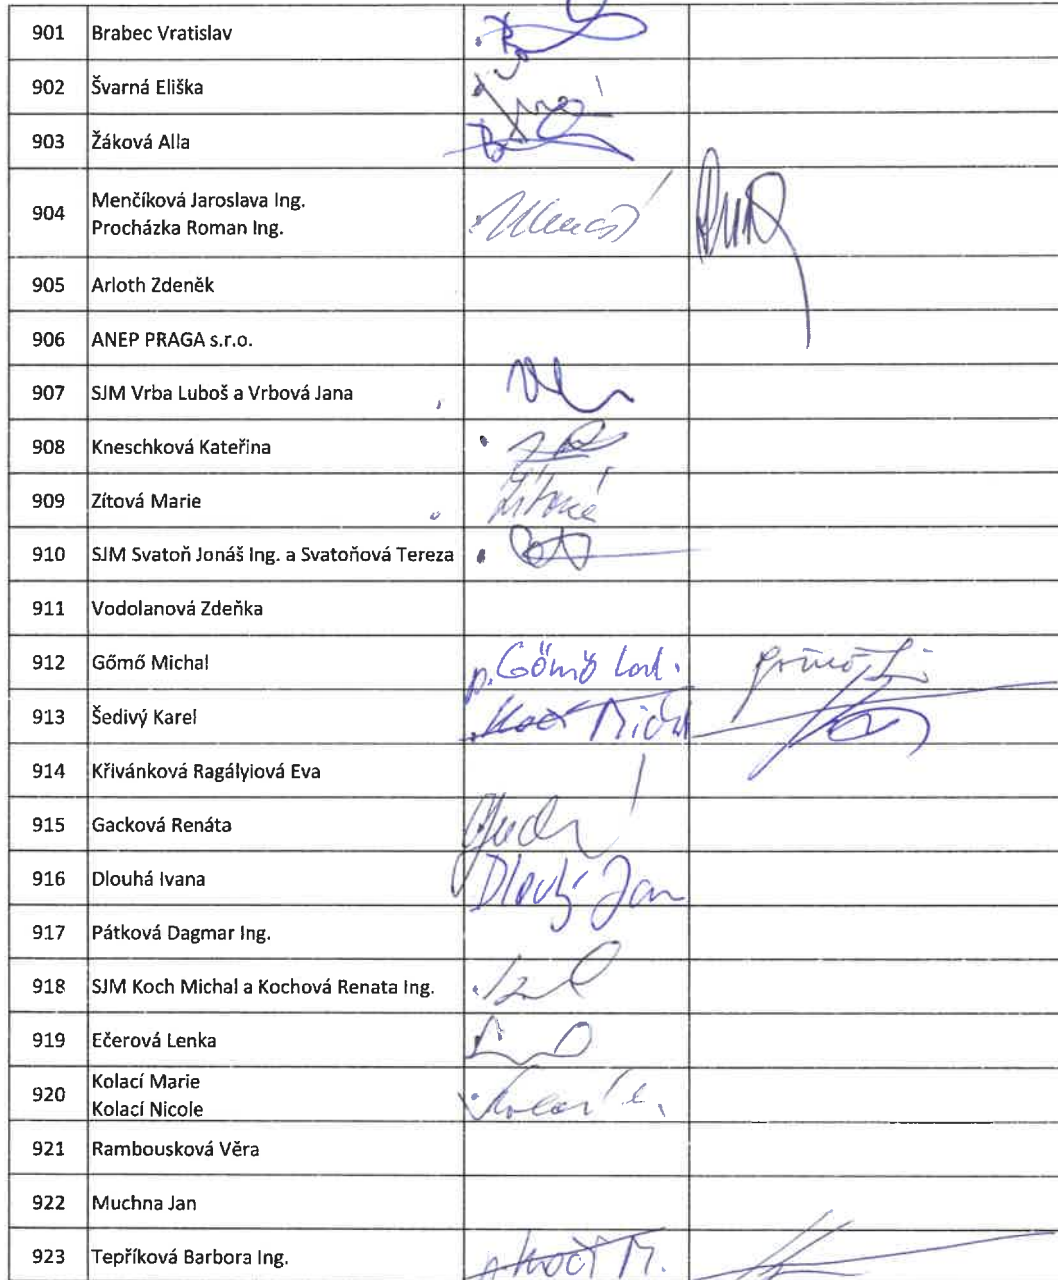 901 Brabec Vratislav
902 Švarná Eliška
903 Žáková Alla
904 Menčíková Jaroslava Ing.
Procházka Roman Ing.
905 Arloth Zdeněk
906 ANEP PRAGA s.r.o.
907 SJM Vrba Luboš a Vrbová Jana
908 Kneschková Kateřina
909 Zítová Marie Zítová
910 SJM Svatoň Jonáš Ing. a Svatoňová Tereza
911 Vodolanová Zdeňka
912 Gőmő Michal p. Gőmő
913 Šedivý Karel
914 Křivánková Ragályiová Eva
915 Gacková Renáta
916 Dlouhá Ivana Dlouhý Jan
917 Pátková Dagmar Ing.
918 SJM Koch Michal a Kochová Renata Ing.
919 Ečerová Lenka
920 Kolací Marie
Kolací Nicole
921 Rambousková Věra
922 Muchna Jan
923 Tepříková Barbora Ing.